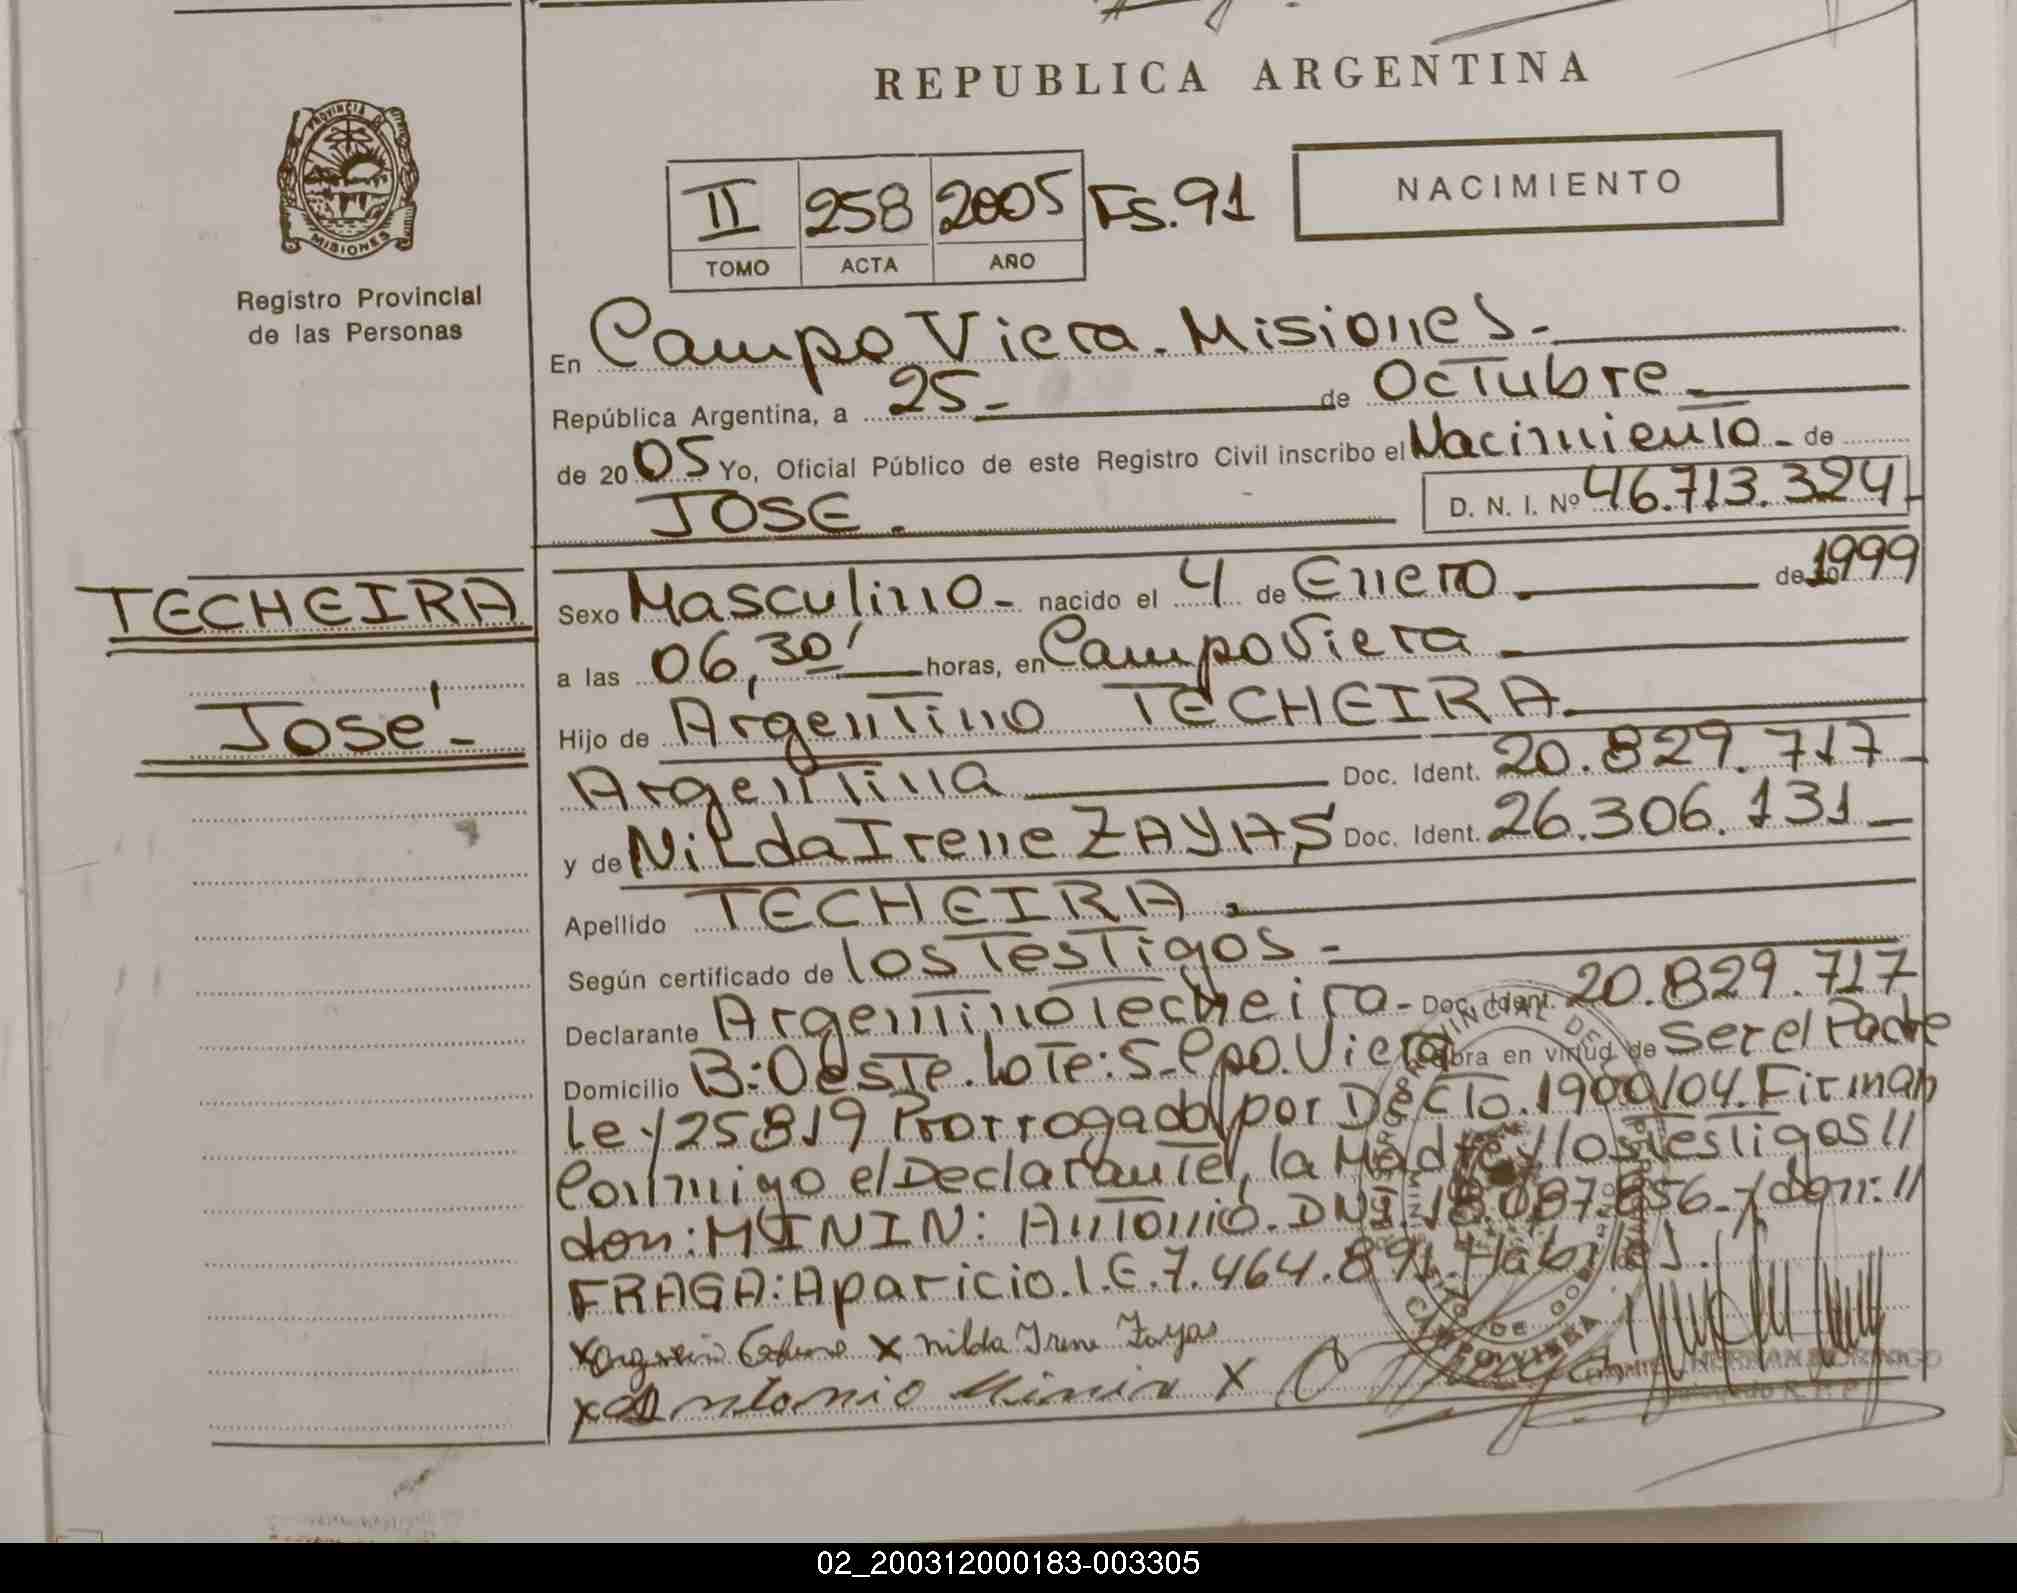 REPUBLICA ARGENTINA
PROVINCIA DE
MISIONES
Registro Provincial
de las Personas
II 258 2005 Fs. 91
TOMO ACTA AÑO
NACIMIENTO
En Campo Viera. Misiones.-
República Argentina, a 25- de Octubre-
de 2005 Yo, Oficial Público de este Registro Civil inscribo el Nacimiento- de
JOSE. D. N. I. Nº 46.713.324
TECHEIRA
José-
Sexo Masculino- nacido el 4 de Enero de 1999
a las 06,30' horas, en Campo Viera
Hijo de Argentino TECHEIRA
Argentina Doc. Ident. 20.829.717-
y de Nilda Irene ZAYAS Doc. Ident. 26.306.131-
Apellido TECHEIRA.
Según certificado de los Testigos-
Declarante Argentino Techeira- Doc. Ident. 20.829.717
Domicilio B:Oeste.Lote:5-Cpo.Viera Obra en virtud de ser el Padre
Ley 25819 Prorrogado por Decto.1900/04. Firman
Conmigo el Declarante, la Madre y los Testigos//
don: MININ: Antonio. DNI. 18.087.856-y don://
FRAGA: Aparicio. L.E. 7.464.891. Habiles.
x x Nilda Irene Zayas
x Antonio Minin x
CAMPO VIERA
02_200312000183-003305